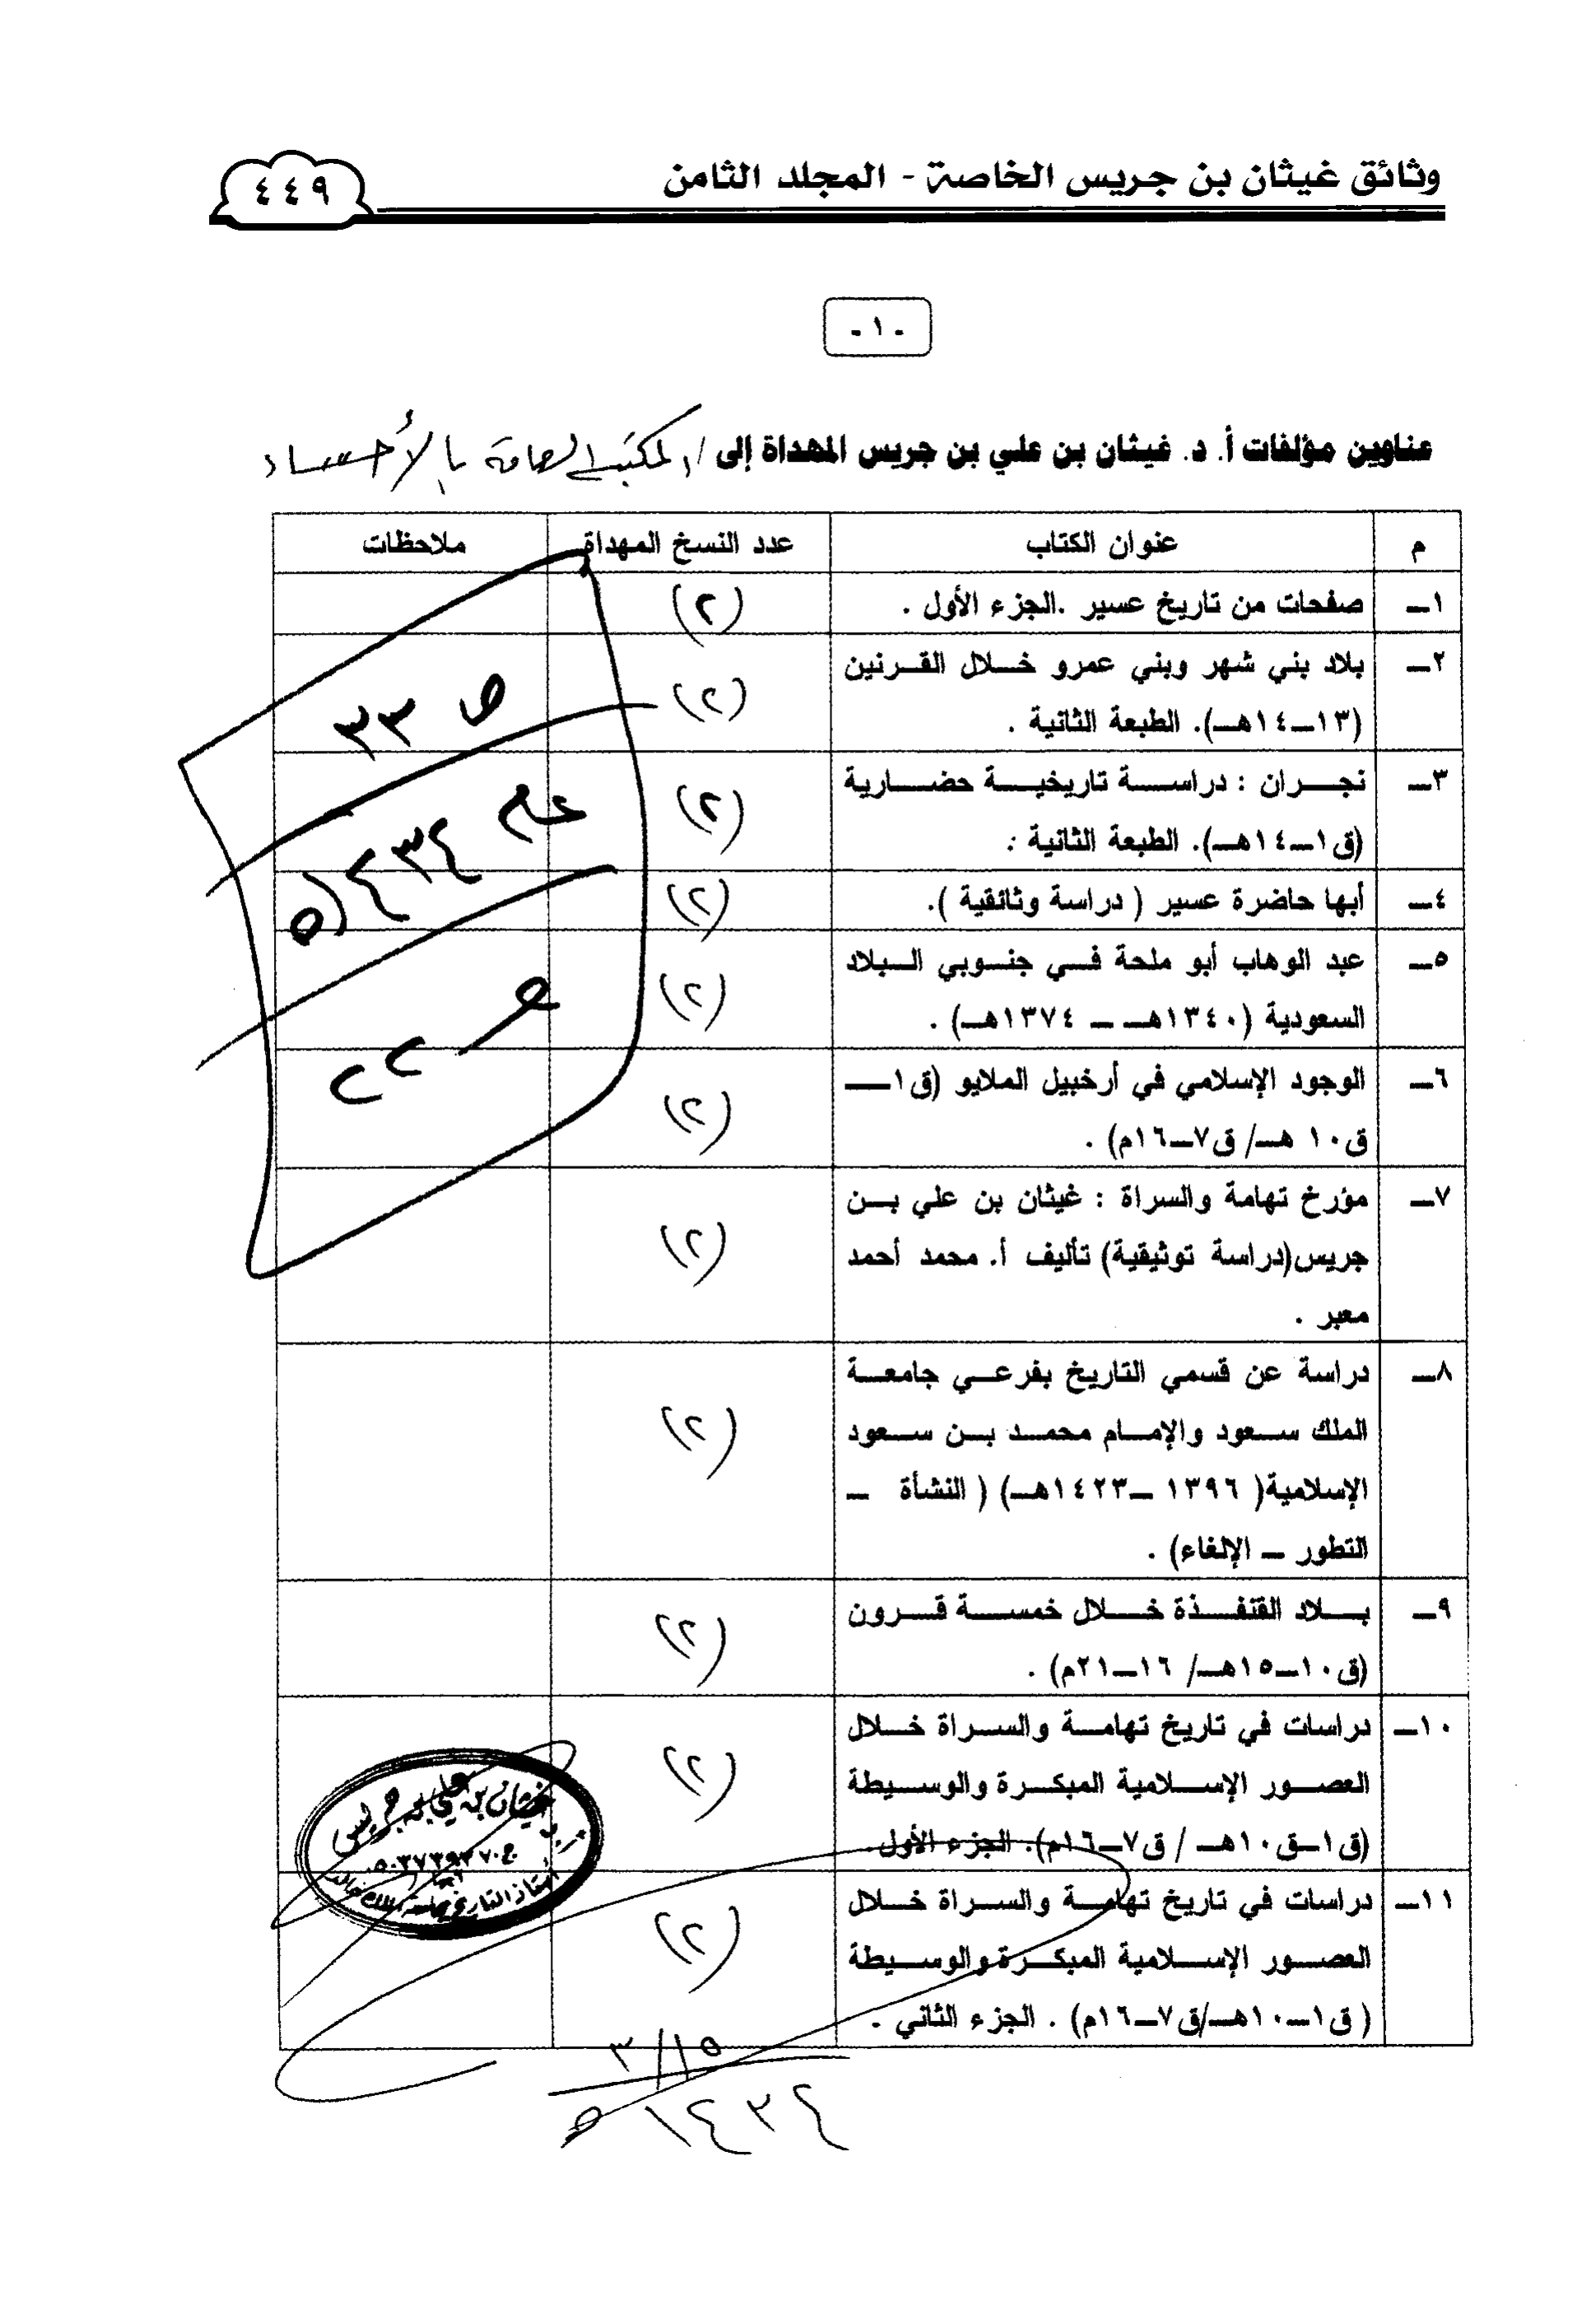 وثائق غيثان بن جريس الخاصة - المجلد الثامن
٤٤٩
- ١ -
عناوين مؤلفات أ. د. غيثان بن علي بن جريس المهداة إلى / المكتبة العامة بالأحساء
م عنوان الكتاب عدد النسخ المهداة ملاحظات
١ـ صفحات من تاريخ عسير .الجزء الأول . (٢)
٢ـ بلاد بني شهر وبني عمرو خلال القرنين
(١٣ـ١٤هـ). الطبعة الثانية . (٢)
٣ـ نجران : دراسة تاريخية حضارية
(ق١ـ١٤هـ). الطبعة الثانية : (٢)
٤ـ أبها حاضرة عسير ( دراسة وثائقية ). (٢)
٥ـ عبد الوهاب أبو ملحة في جنوبي البلاد
السعودية (١٣٤٠هـ ـ ١٣٧٤هـ) . (٢)
٦ـ الوجود الإسلامي في أرخبيل الملايو (ق١ـ
ق١٠ هـ/ ق٧ـ١٦م) . (٢)
٧ـ مؤرخ تهامة والسراة : غيثان بن علي بن
جريس(دراسة توثيقية) تأليف أ. محمد أحمد
معبر . (٢)
٨ـ دراسة عن قسمي التاريخ بفرعي جامعة
الملك سعود والإمام محمد بن سعود
الإسلامية( ١٣٩٦ ـ١٤٢٣هـ) ( النشأة ـ
التطور ـ الإلغاء) . (٢)
٩ـ بلاد القنفذة خلال خمسة قرون
(ق١٠ـ١٥هـ/ ١٦ـ٢١م) . (٢)
١٠ـ دراسات في تاريخ تهامة والسراة خلال
العصور الإسلامية المبكرة والوسيطة
(ق١ـق١٠هـ / ق٧ـ١٦م). الجزء الأول. (٢)
١١ـ دراسات في تاريخ تهامة والسراة خلال
العصور الإسلامية المبكرة والوسيطة
( ق١ـ١٠هـ/ق٧ـ١٦م) . الجزء الثاني . (٢)
ص ٣٣
عام ١٤٣٤هـ
غيثان بن علي بن جريس
أستاذ التاريخ بجامعة الملك خالد
١٥/٣
١٤٣٤هـ